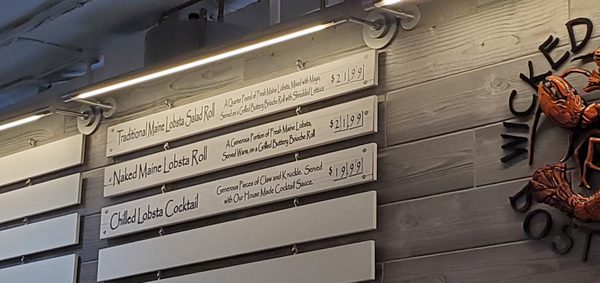 Traditional Maine Lobsta Salad Roll
A Quarter Pound of Fresh Maine Lobsta, Mixed with Mayo,
Served on a Grilled Buttery Brioche Roll with Shredded Lettuce
$21.99
Naked Maine Lobsta Roll
A Generous Portion of Fresh Maine Lobsta,
Served Warm, on a Grilled Buttery Brioche Roll
$21.99
Chilled Lobsta Cocktail
Generous Pieces of Claw and Knuckle. Served
with Our House Made Cocktail Sauce.
$19.99
WICKED